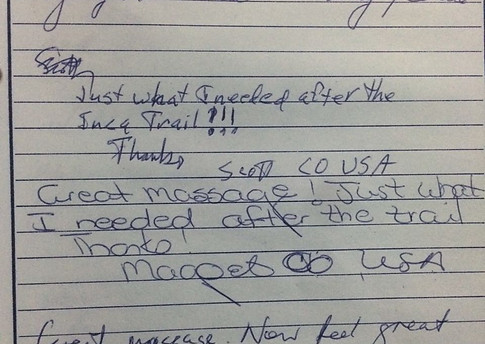 Just what I needed after the
Inca Trail!!!
Thanks,
Scott CO USA
Great massage! Just what
I needed after the trail
Thanks!
CO USA
Great massage. Now feel great